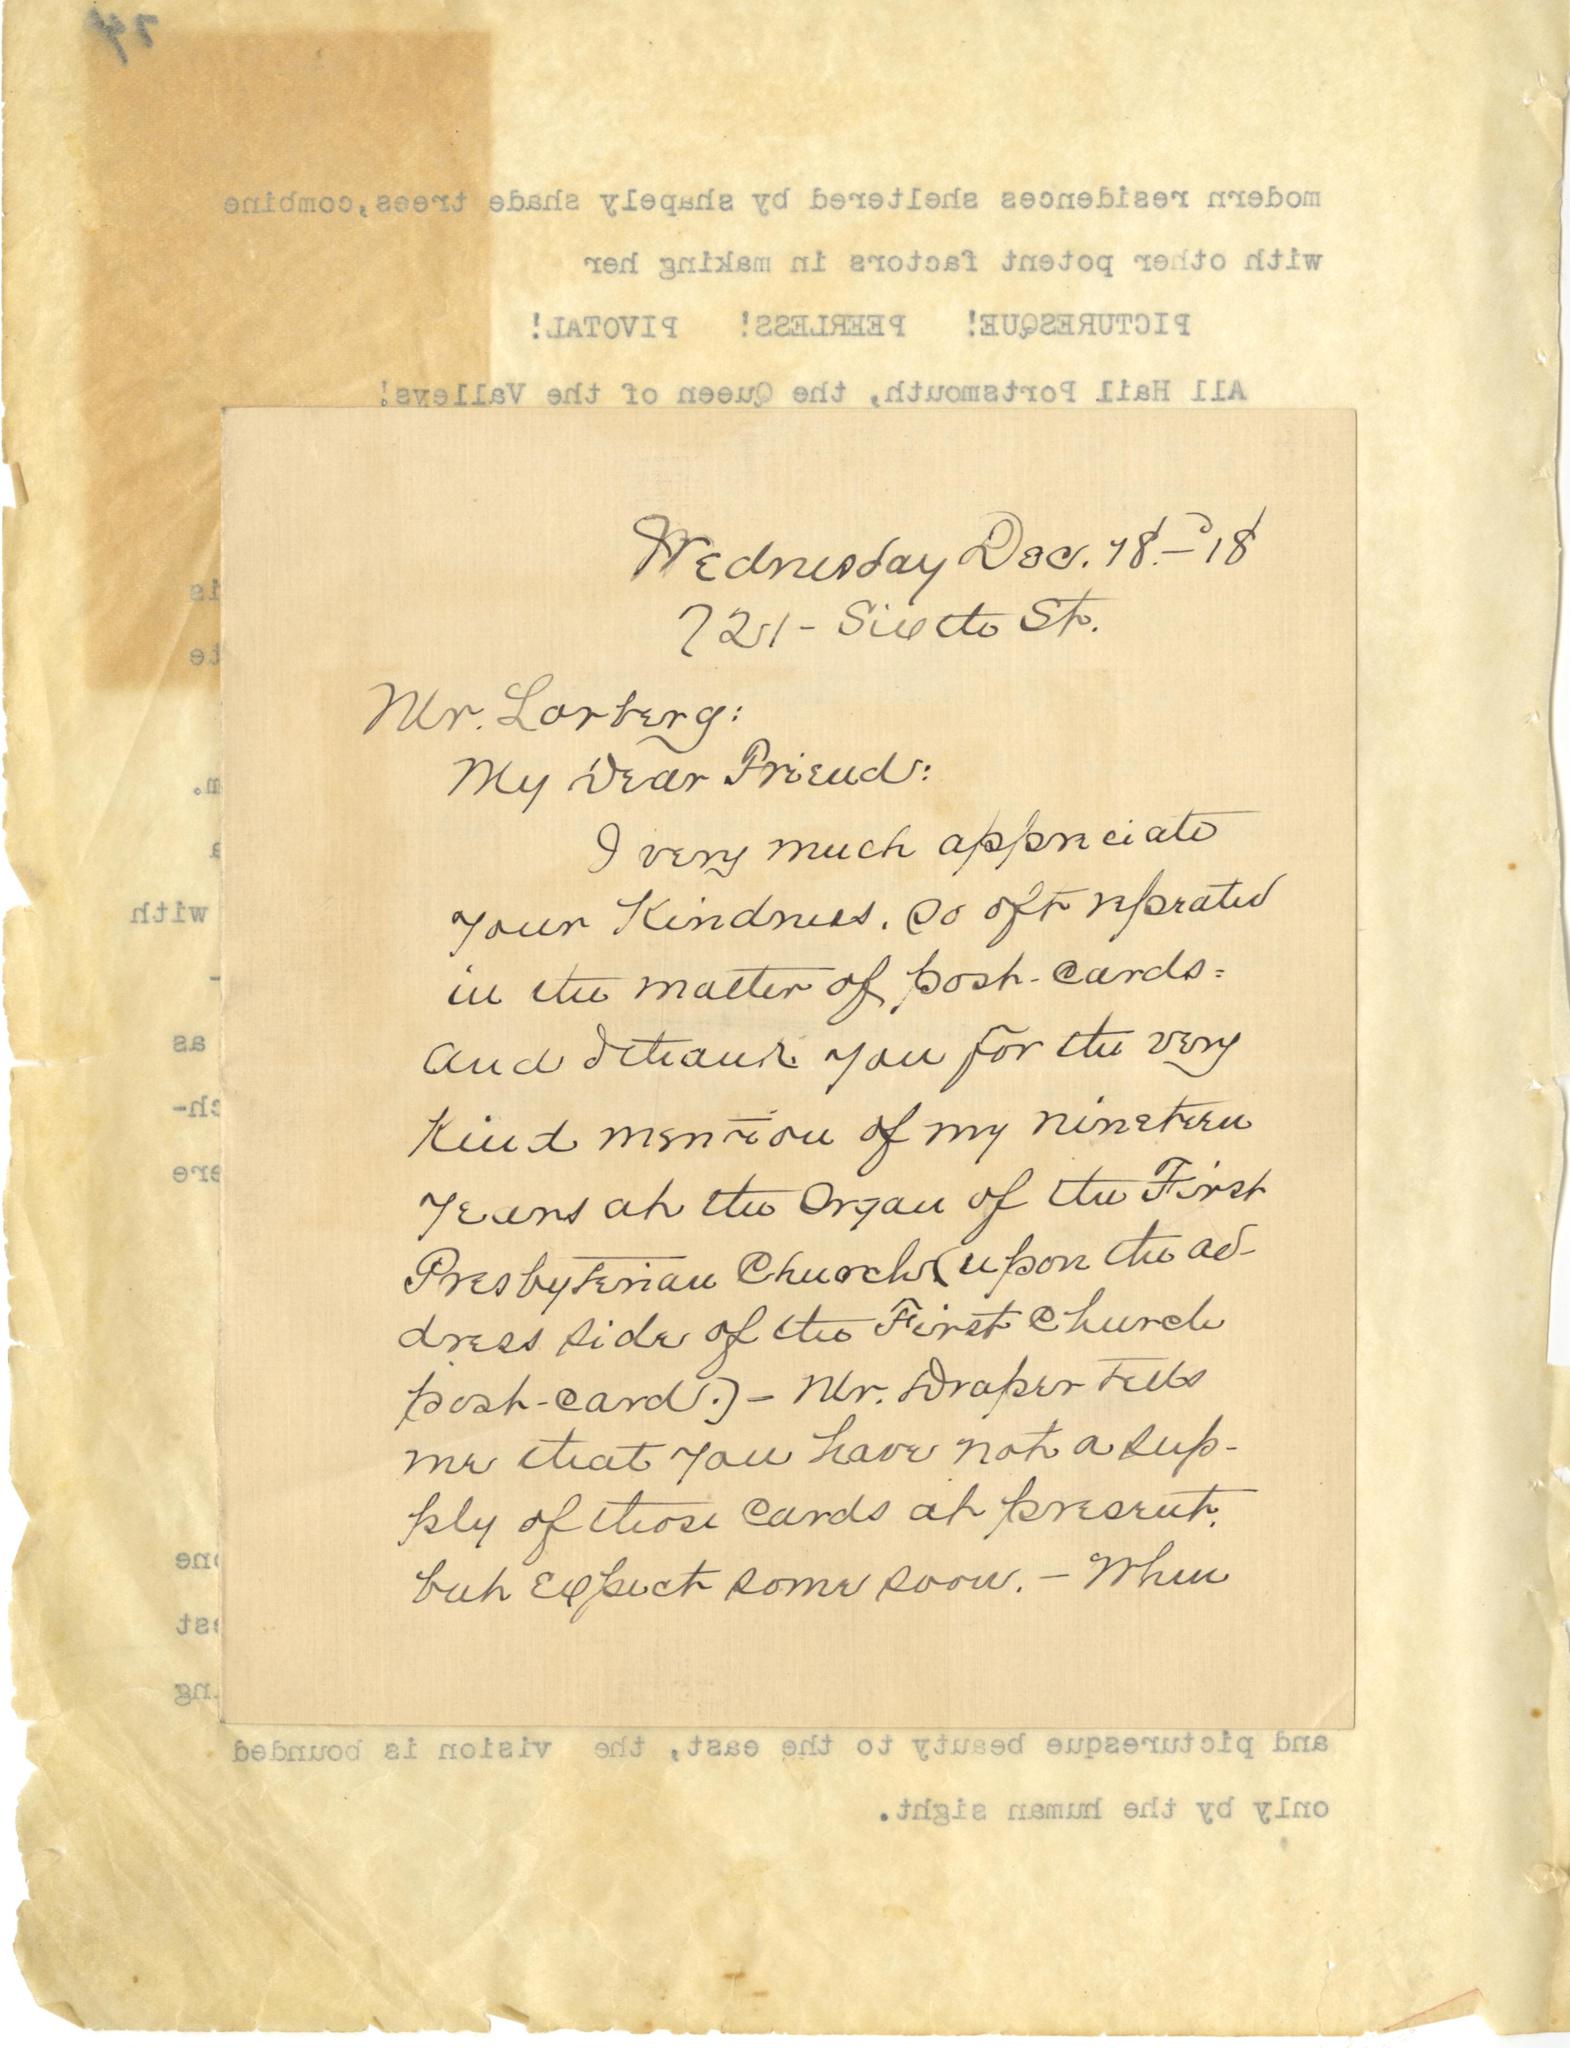 74
modern residences sheltered by shapely shade trees,combine
with other potent factors in making her
PICTURESQUE! PEERLESS! PIVOTAL!
All Hail Portsmouth, the Queen of the Valleys!
Wednesday Dec. 18.—'18
721 - Sixth St.
Mr. Lorberg:
My Dear Friend:
I very much appreciate
your Kindness. so oft repeated
in the matter of post-cards-
and I thank you for the very
Kind mention of my nineteen
years at the Organ of the First
Presbyterian Church (upon the ad-
dress side of the First Church
post-card.) — Mr. Draper tells
me that you have not a sup-
ply of those cards at present.
but expect some soon. — When
is
te
m.
a
with
-
as
ch-
ere
one
est
ing
and picturesque beauty to the east, the vision is bounded
only by the human sight.